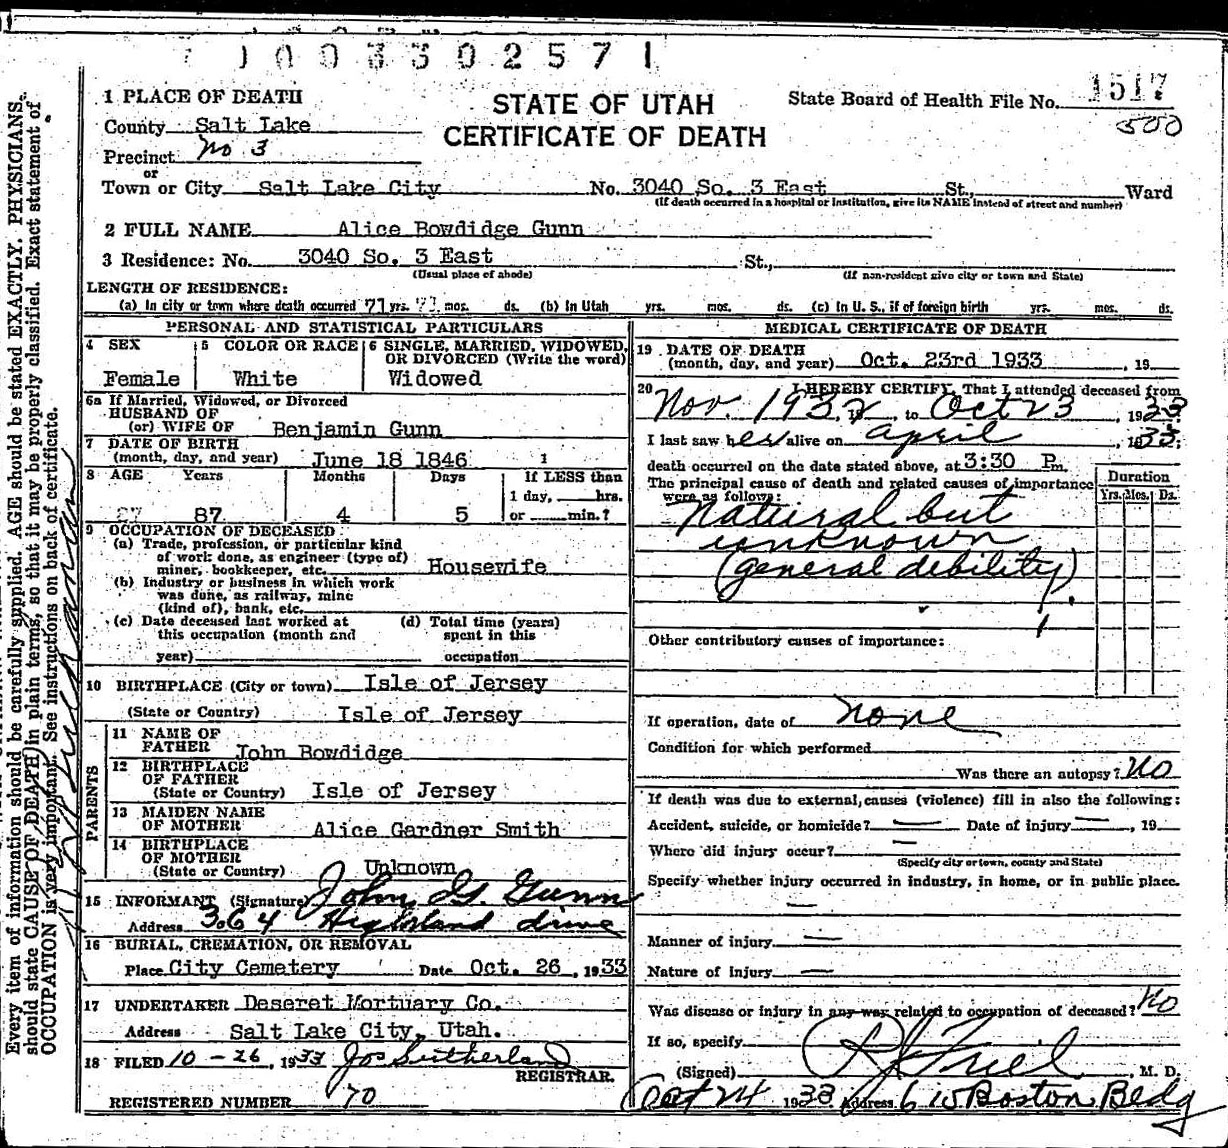 1003302571
1 PLACE OF DEATH
STATE OF UTAH
CERTIFICATE OF DEATH
State Board of Health File No. 1517
500
County Salt Lake
Precinct No 3
or
Town or City Salt Lake City No. 3040 So. 3 East St., Ward
(If death occurred in a hospital or institution, give its NAME instead of street and number)
2 FULL NAME Alice Bowdidge Gunn
3 Residence: No. 3040 So. 3 East St.,
(Usual place of abode) (If non-resident give city or town and State)
LENGTH OF RESIDENCE:
(a) In city or town where death occurred 71 yrs. mos. ds. (b) In Utah yrs. mos. ds. (c) In U. S., if of foreign birth yrs. mos. ds.
PERSONAL AND STATISTICAL PARTICULARS
4 SEX
Female
5 COLOR OR RACE
White
6 SINGLE, MARRIED, WIDOWED,
OR DIVORCED (Write the word)
Widowed
6a If Married, Widowed, or Divorced
HUSBAND OF
(or) WIFE OF Benjamin Gunn
7 DATE OF BIRTH
(month, day, and year) June 18 1846
8 AGE Years Months Days If LESS than
1 day, hrs.
87 4 5 or min.?
9 OCCUPATION OF DECEASED
(a) Trade, profession, or particular kind
of work done, as engineer (type of)
miner, bookkeeper, etc. Housewife
(b) Industry or business in which work
was done, as railway, mine
(kind of), bank, etc.
(c) Date deceased last worked at (d) Total time (years)
this occupation (month and spent in this
year) occupation
10 BIRTHPLACE (City or town) Isle of Jersey
(State or Country) Isle of Jersey
PARENTS
11 NAME OF
FATHER John Bowdidge
12 BIRTHPLACE
OF FATHER
(State or Country) Isle of Jersey
13 MAIDEN NAME
OF MOTHER Alice Gardner Smith
14 BIRTHPLACE
OF MOTHER
(State or Country) Unknown
15 INFORMANT (Signature) John G. Gunn
Address 3064 Highland drive
16 BURIAL, CREMATION, OR REMOVAL
Place City Cemetery Date Oct. 26, 1933
17 UNDERTAKER Deseret Mortuary Co.
Address Salt Lake City, Utah.
18 FILED 10-26, 1933 Jos Sutherland
REGISTRAR.
REGISTERED NUMBER 70
MEDICAL CERTIFICATE OF DEATH
19 DATE OF DEATH
(month, day, and year) Oct. 23rd 1933, 19
20 I HEREBY CERTIFY, That I attended deceased from
Nov. 1932, to Oct 23, 1933
I last saw her alive on April, 1933.
death occurred on the date stated above, at 3:30 P m.
The principal cause of death and related causes of importance
were as follows:
Duration
Yrs. Mos. Ds.
Natural but
unknown
(general debility)
Other contributory causes of importance:
If operation, date of none
Condition for which performed
Was there an autopsy? No
If death was due to external causes (violence) fill in also the following:
Accident, suicide, or homicide? — Date of injury —, 19
Where did injury occur? —
(Specify city or town, county and State)
Specify whether injury occurred in industry, in home, or in public place.
—
Manner of injury —
Nature of injury —
Was disease or injury in any way related to occupation of deceased? No
If so, specify
(Signed) M. D.
Oct 24 1933 Address 610 Boston Bldg
Every item of information should be carefully supplied. AGE should be stated EXACTLY. PHYSICIANS
should state CAUSE OF DEATH in plain terms, so that it may be properly classified. Exact statement of
OCCUPATION is very important. See instructions on back of certificate.